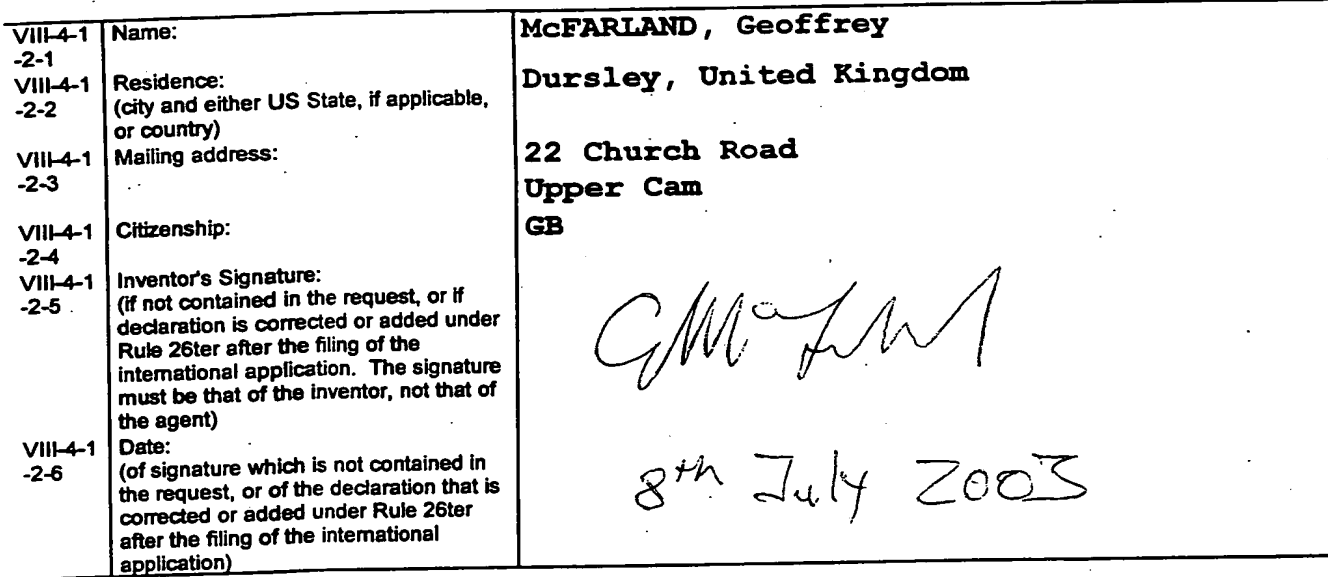 VIII-4-1 Name: McFARLAND, Geoffrey
-2-1
VIII-4-1 Residence: Dursley, United Kingdom
-2-2 (city and either US State, if applicable,
or country)
VIII-4-1 Mailing address: 22 Church Road
-2-3 Upper Cam
VIII-4-1 Citizenship: GB
-2-4
VIII-4-1 Inventor's Signature:
-2-5 (if not contained in the request, or if
declaration is corrected or added under
Rule 26ter after the filing of the
international application. The signature
must be that of the inventor, not that of
the agent)
VIII-4-1 Date: 8th July 2003
-2-6 (of signature which is not contained in
the request, or of the declaration that is
corrected or added under Rule 26ter
after the filing of the international
application)